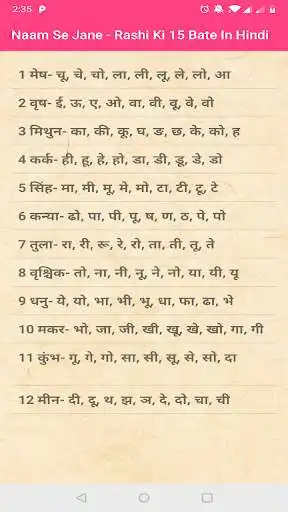 2:35
Naam Se Jane - Rashi Ki 15 Bate In Hindi
1 मेष- चू, चे, चो, ला, ली, लू, ले, लो, आ
2 वृष- ई, ऊ, ए, ओ, वा, वी, वू, वे, वो
3 मिथुन- का, की, कू, घ, ङ, छ, के, को, ह
4 कर्क- ही, हू, हे, हो, डा, डी, डू, डे, डो
5 सिंह- मा, मी, मू, मे, मो, टा, टी, टू, टे
6 कन्या- ढो, पा, पी, पू, ष, ण, ठ, पे, पो
7 तुला- रा, री, रू, रे, रो, ता, ती, तू, ते
8 वृश्चिक- तो, ना, नी, नू, ने, नो, या, यी, यू
9 धनु- ये, यो, भा, भी, भू, धा, फा, ढा, भे
10 मकर- भो, जा, जी, खी, खू, खे, खो, गा, गी
11 कुंभ- गू, गे, गो, सा, सी, सू, से, सो, दा
12 मीन- दी, दू, थ, झ, ञ, दे, दो, चा, ची